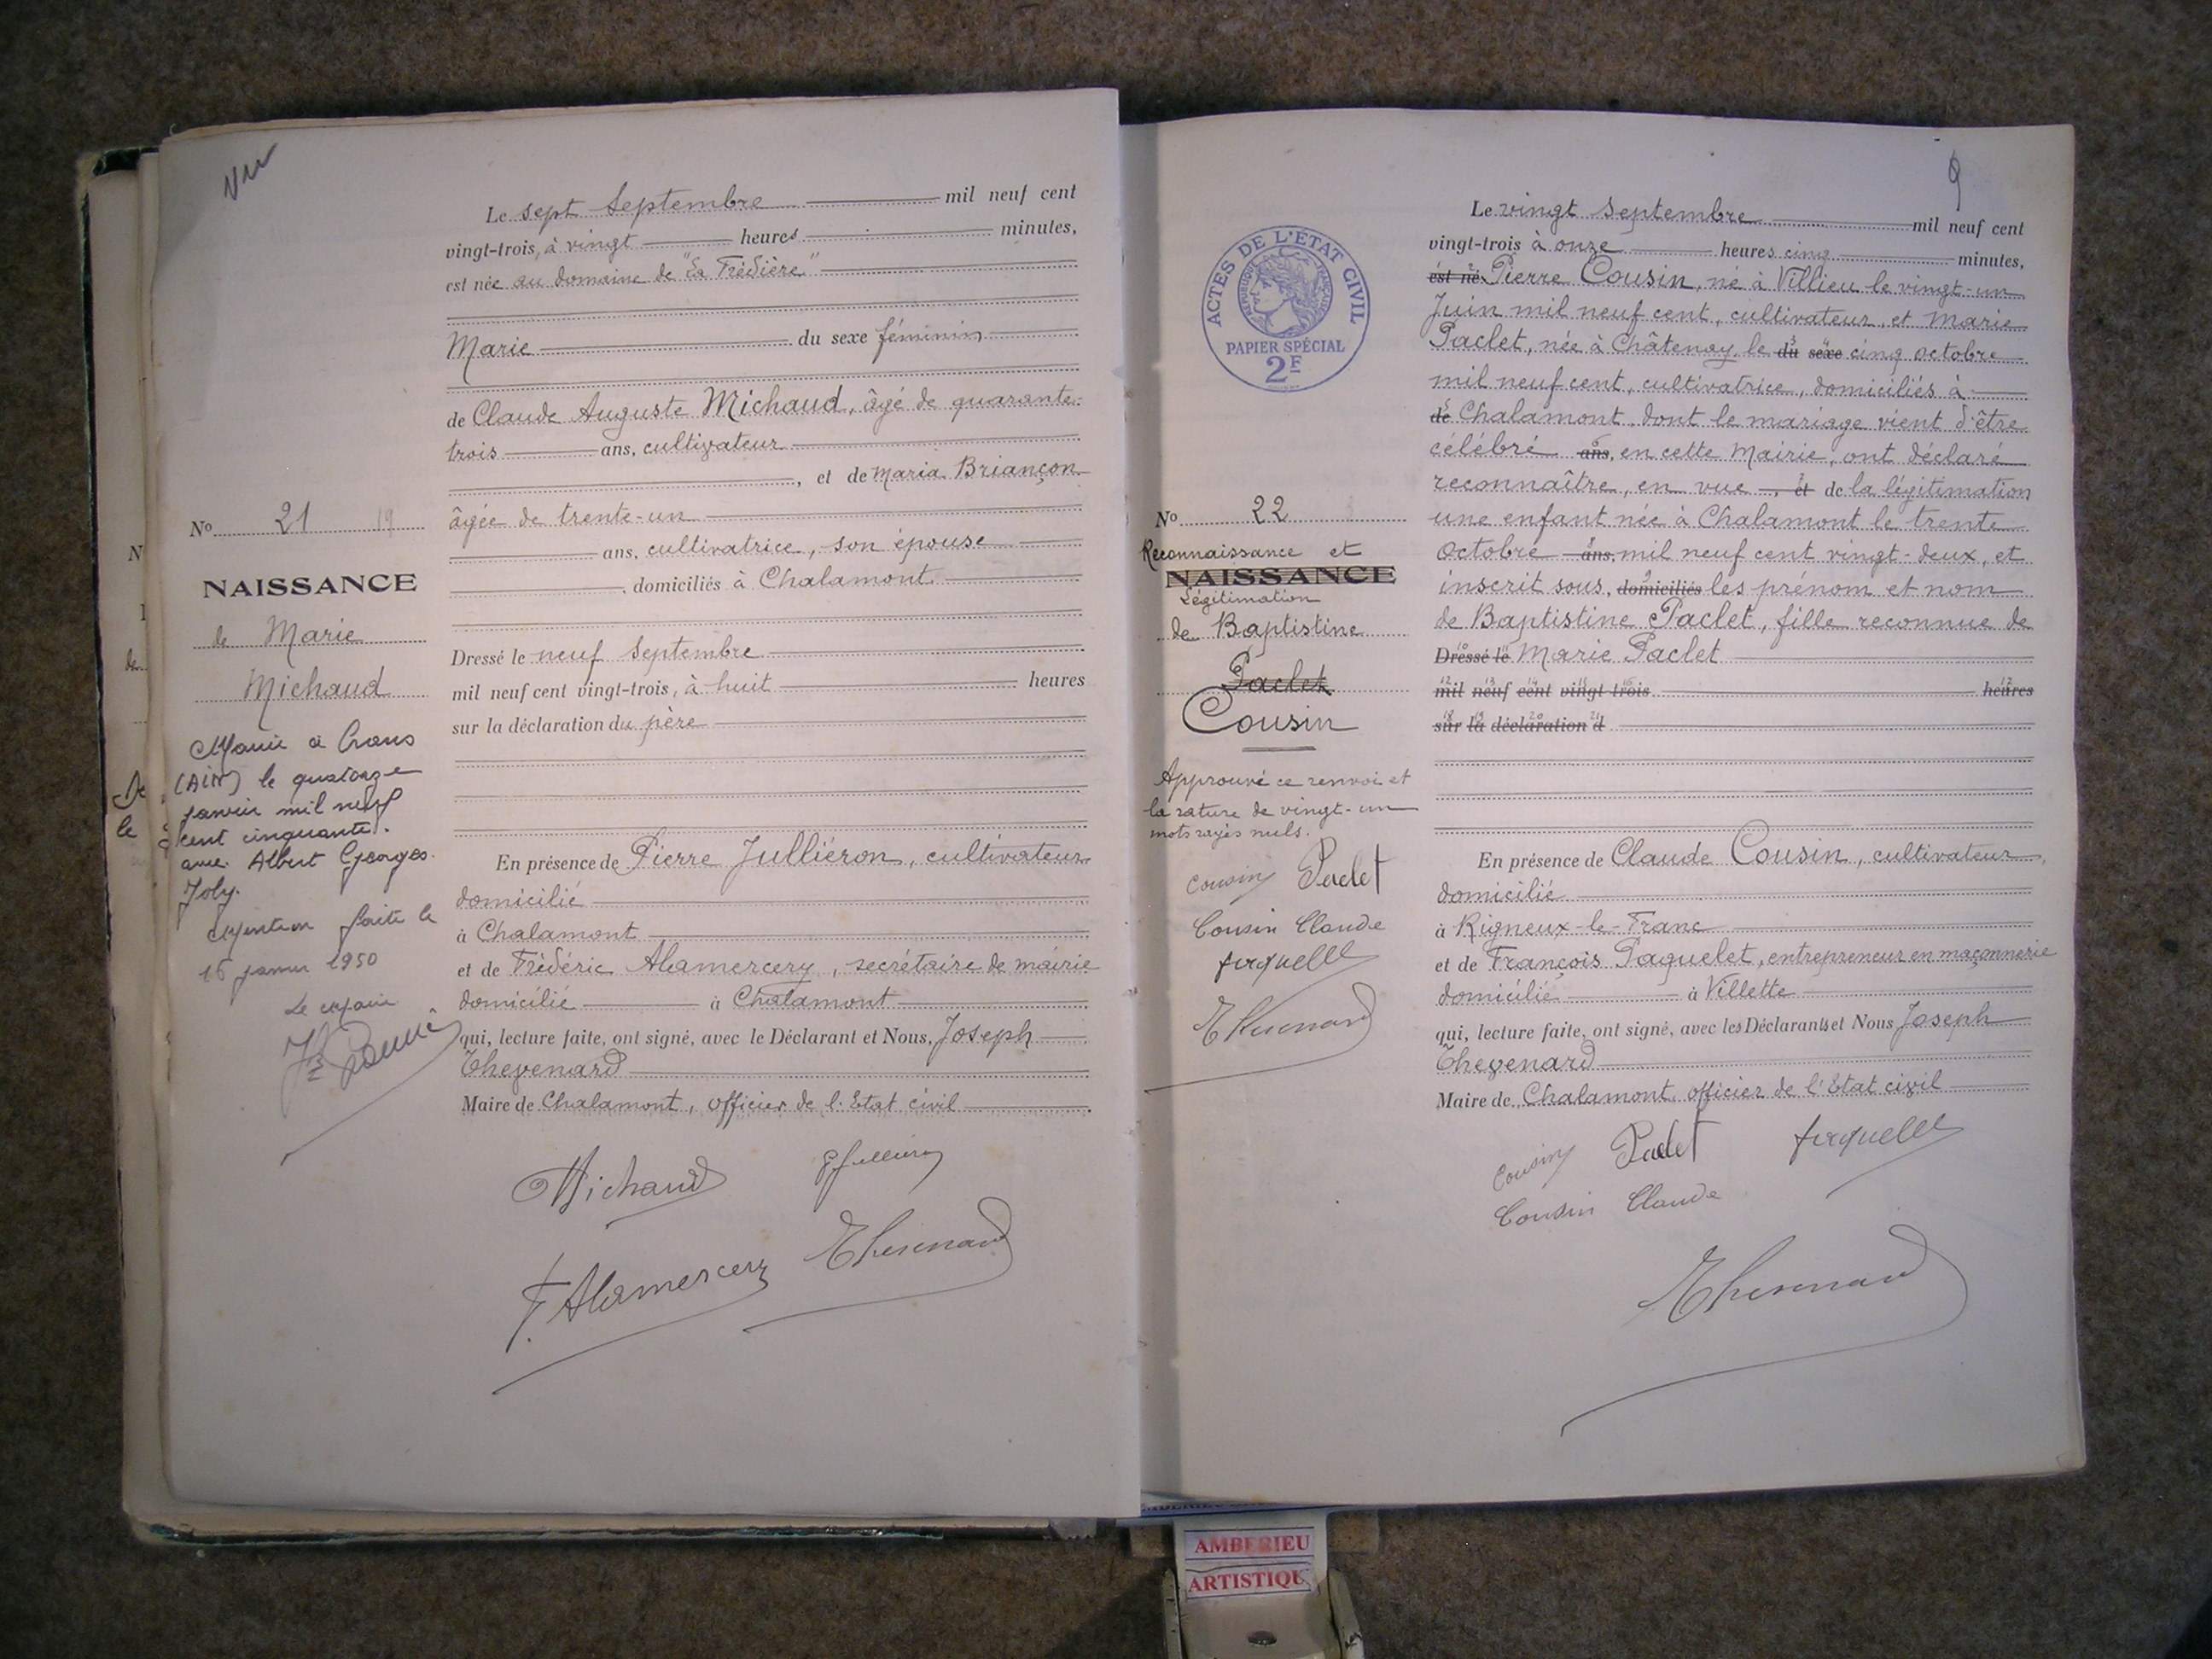 Vu
Le sept Septembre mil neuf cent
vingt-trois, à vingt heures minutes,
est née au domaine de "La Frédière"
Marie du sexe féminin
de Claude Auguste Michaud, âgé de quarante-
trois ans, cultivateur
, et de Maria Briançon
âgée de trente-un
ans, cultivatrice, son épouse
, domiciliés à Chalamont
Dressé le neuf Septembre
mil neuf cent vingt-trois, à huit heures
sur la déclaration du père
En présence de Pierre Julliéron, cultivateur
domicilié
à Chalamont
et de Frédéric Alamercery, secrétaire de mairie
domicilié à Chalamont
qui, lecture faite, ont signé, avec le Déclarant et Nous, Joseph
Thevenard
Maire de Chalamont, officier de l'Etat civil
Michaud
F. Alamercery Thevenard
No 21 19
NAISSANCE
de Marie
Michaud
Marié à Crans
(AIN) le quatorze
janvier mil neuf
cent cinquante.
avec Albert Georges
Joly.
Mention faite le
16 janvier 1950
Le Maire
9
ACTES DE L'ETAT CIVIL
REPUBLIQUE FRANÇAISE
PAPIER SPÉCIAL
2F
Le vingt Septembre mil neuf cent
vingt-trois à onze heures cinq minutes,
est né Pierre Cousin, né à Villieu le vingt-un
Juin mil neuf cent, cultivateur, et Marie
Paclet, née à Châtenay le du sexe cinq octobre
mil neuf cent, cultivatrice, domiciliés à
de Chalamont, dont le mariage vient d'être
célébré ans, en cette Mairie, ont déclaré
reconnaître, en vue , et de la légitimation
une enfant née à Chalamont le trente
Octobre ans, mil neuf cent vingt-deux, et
inscrit sous, domiciliés les prénom et nom
de Baptistine Paclet, fille reconnue de
Dressé le Marie Paclet
mil neuf cent vingt-trois heures
sur la déclaration d
En présence de Claude Cousin, cultivateur,
domicilié
à Rigneux-le-Franc
et de François Paquelet, entrepreneur en maçonnerie
domicilié à Villette
qui, lecture faite, ont signé, avec les Déclarants et Nous Joseph
Thevenard
Maire de Chalamont, officier de l'Etat civil
Cousin Paclet
Cousin Claude
Thevenard
No 22
Reconnaissance et
NAISSANCE
Légitimation
de Baptistine
Paclet
Cousin
Approuvé ce renvoi et
la rature de vingt-un
mots rayés nuls.
Cousin Paclet
Cousin Claude
Thevenard
AMBERIEU
ARTISTIQU